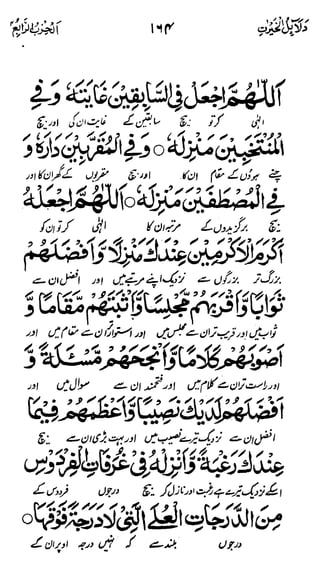 دلائل الخیرات ۱۶۴ الحزب الرابع
اَللّٰهُمَّ اجْعَلْ فِي السَّابِقِيْنَ غَايَتَهٗ وَفِي
الٰہی کر تو بیچ سابقین کے غایت ان کی اور بیچ
الْمُنْتَخَبِيْنَ مَنْزِلَهٗ ○ وَفِي الْمُقَرَّبِيْنَ دَارَهٗ وَ
چنے ہوؤں کے مقام ان کا اور بیچ مقربوں کے گھر ان کا اور
فِي الْمُصْطَفَيْنَ مَنْزِلَهٗ ○ اَللّٰهُمَّ اجْعَلْهُ
بیچ برگزیدوں کے مرتبہ ان کا الٰہی کر تو ان کو
اَكْرَمَ الْاَكْرَمِيْنَ عِنْدَكَ مَنْزِلًا وَّاَفْضَلَهُمْ
بزرگ تر بزرگوں سے نزدیک اپنے مرتبے میں اور افضل ان سے
ثَوَابًا وَّاَقْرَبَهُمْ مَّجْلِسًا وَّاَثْبَتَهُمْ مَّقَامًا وَّ
ثواب میں اور قریب تر ان سے مجلس میں اور استوار ان سے مقام میں اور
اَصْوَبَهُمْ كَلَامًا وَّاَنْجَحَهُمْ مَّسْئَلَةً وَّ
اور راست تر ان سے کلام میں اور فتحمند ان سے سوال میں اور
اَفْضَلَهُمْ لَدَيْكَ نَصِيْبًا وَّاَعْظَمَهُمْ فِيْمَا
افضل ان سے نزدیک تیرے نصیب میں اور بہت بڑی ان سے بیچ
عِنْدَكَ رَغْبَةً وَّاَنْزِلْهُ فِيْ غُرُفَاتِ الْفِرْدَوْسِ
اسکے نزدیک تیرے ہے رغبت اور نازل کر بیچ درجوں فردوس کے
مِنَ الدَّرَجَاتِ الْعُلَى الَّتِيْ لَا دَرَجَةَ فَوْقَهَا ○
درجوں بلند سے کہ نہیں درجہ اوپر ان کے